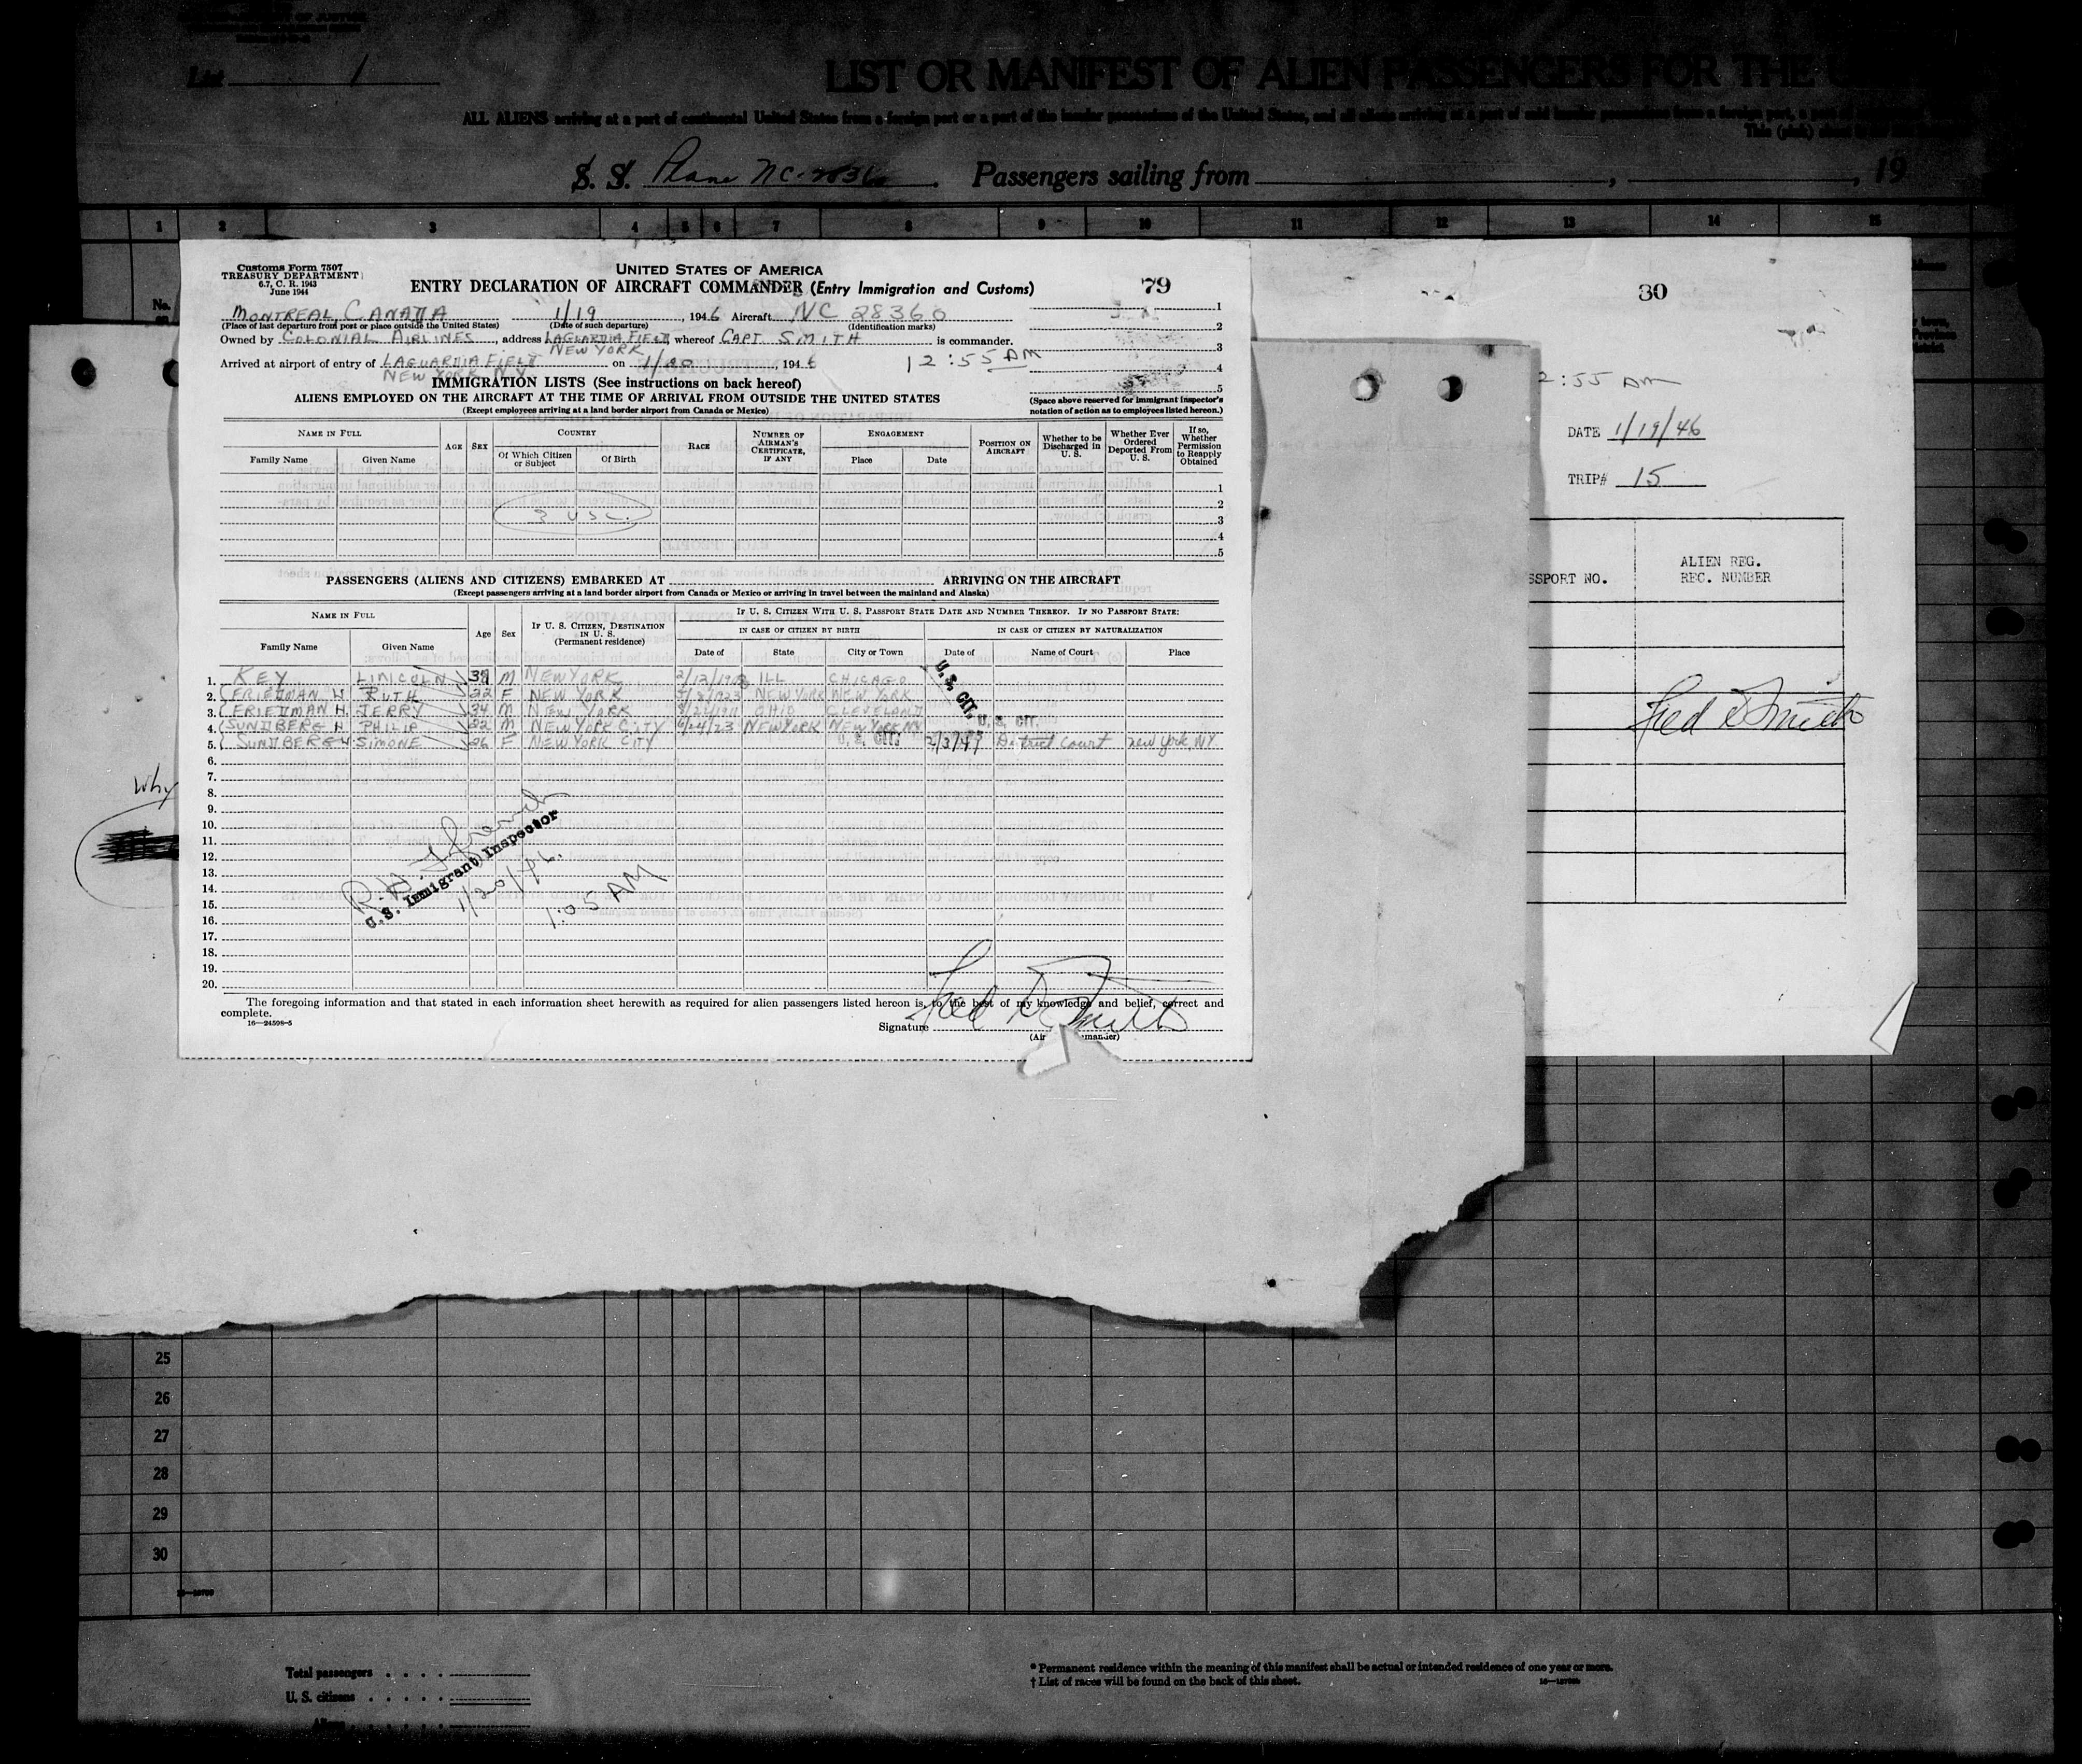 List 1
LIST OR MANIFEST OF ALIEN PASSENGERS FOR THE
ALL ALIENS arriving at a port of continental United States from a foreign port or a port of the insular possessions of the United States, and all aliens arriving at a port of said insular possessions from a foreign port, a port of
This (pink) sheet
S. S. Plane NC-2836 . Passengers sailing from , , 19
1 2 3 4 5 6 7 8 9 10 11 12 13 14 15
No.
Customs Form 7507
TREASURY DEPARTMENT
6.7, C. R. 1943
June 1944
UNITED STATES OF AMERICA
ENTRY DECLARATION OF AIRCRAFT COMMANDER (Entry Immigration and Customs)
79
MONTREAL, CANADA 1/19 , 1946 Aircraft NC 28360
(Place of last departure from port or place outside the United States) (Date of such departure) (Identification marks)
Owned by COLONIAL AIRLINES , address LAGUARDIA FIELD whereof CAPT. SMITH is commander.
NEW YORK
Arrived at airport of entry of LAGUARDIA FIELD on 1/20 , 1946 12:55 AM
NEW YORK N.Y.
1
2
3
4
5
IMMIGRATION LISTS (See instructions on back hereof)
ALIENS EMPLOYED ON THE AIRCRAFT AT THE TIME OF ARRIVAL FROM OUTSIDE THE UNITED STATES
(Except employees arriving at a land border airport from Canada or Mexico)
(Space above reserved for immigrant inspector's
notation of action as to employees listed hereon.)
NAME IN FULL
Family Name Given Name
AGE SEX
COUNTRY
Of Which Citizen or Subject Of Birth
RACE
NUMBER OF AIRMAN'S CERTIFICATE, IF ANY
ENGAGEMENT
Place Date
POSITION ON AIRCRAFT
Whether to be Discharged in U. S.
Whether Ever Ordered Deported From U. S.
If so, Whether Permission to Reapply Obtained
1
2
3 USC.
3
4
5
PASSENGERS (ALIENS AND CITIZENS) EMBARKED AT ARRIVING ON THE AIRCRAFT
(Except passengers arriving at a land border airport from Canada or Mexico or arriving in travel between the mainland and Alaska)
NAME IN FULL
Family Name Given Name
Age Sex
IF U. S. CITIZEN, DESTINATION IN U. S. (Permanent residence)
IF U. S. CITIZEN WITH U. S. PASSPORT STATE DATE AND NUMBER THEREOF. IF NO PASSPORT STATE:
IN CASE OF CITIZEN BY BIRTH IN CASE OF CITIZEN BY NATURALIZATION
Date of State City or Town Date of Name of Court Place
1. KEY LINCOLN M NEW YORK ILL CHICAGO
2. FRIEDMAN H RUTH 22 F NEW YORK NEW YORK NEW YORK
3. FRIEDMAN H. JERRY 34 M NEW YORK OHIO CLEVELAND
4. SUNDBERG H PHILIP 22 M NEW YORK CITY 6/24/23 NEW YORK NEW YORK NY
5. SUNDBERG H SIMONE 26 F NEW YORK CITY District Court New York, NY
U. S. CIT.
U. S. CIT.
U. S. CIT.
6.
7.
8.
9.
10.
11.
12.
13.
14.
15.
16.
17.
18.
19.
20.
U.S. Immigrant Inspector
1/20/46.
1:05 AM
The foregoing information and that stated in each information sheet herewith as required for alien passengers listed hereon is, to the best of my knowledge and belief, correct and
complete.
16—24598-5
Signature Fred D Smith
Why
30
2:55 AM
DATE 1/19/46
TRIP# 15
SSPORT NO.
ALIEN REG.
REC. NUMBER
Fred D Smith
25
26
27
28
29
30
Total passengers
U. S. citizens
Aliens
* Permanent residence within the meaning of this manifest shall be actual or intended residence of one year or more.
† List of races will be found on the back of this sheet.